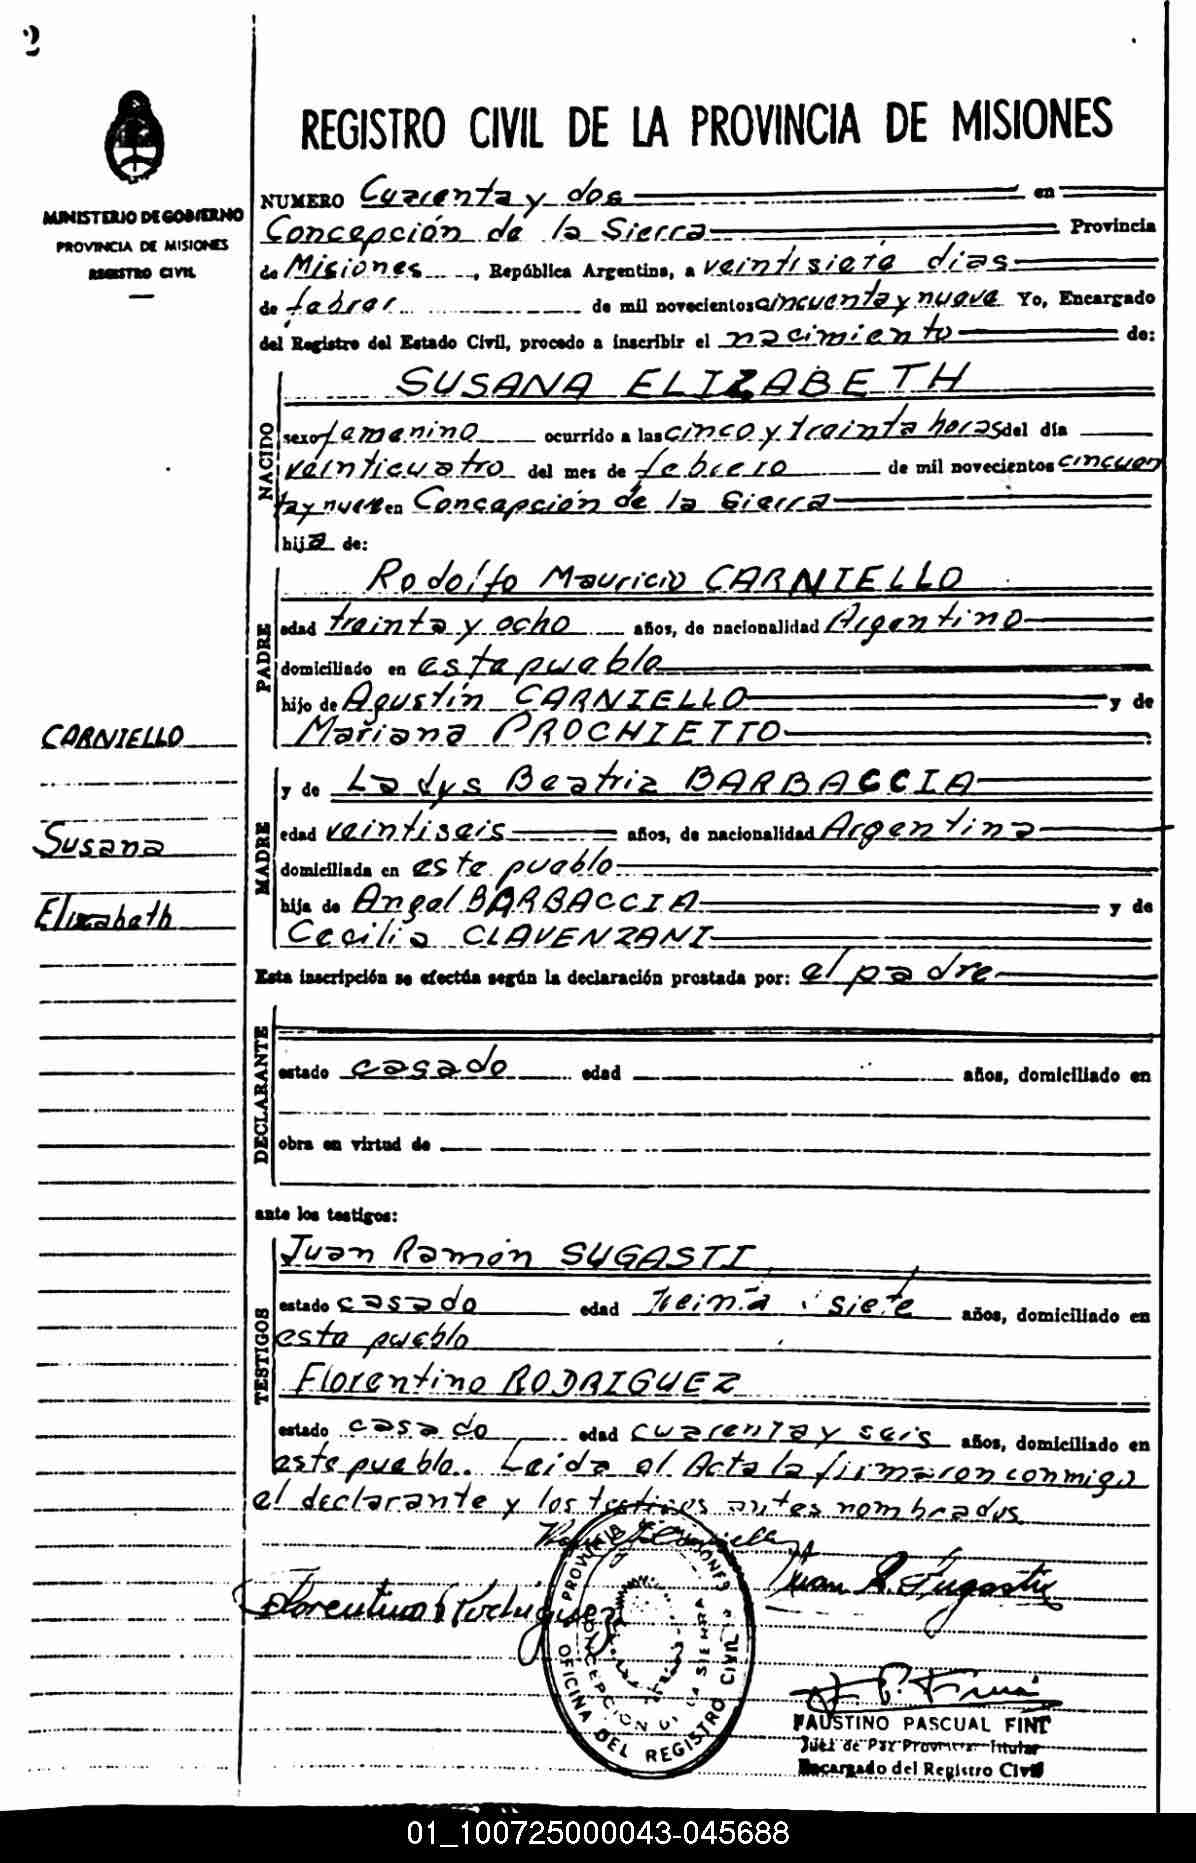 2
MINISTERIO DE GOBIERNO
PROVINCIA DE MISIONES
REGISTRO CIVIL
REGISTRO CIVIL DE LA PROVINCIA DE MISIONES
NUMERO Cuarenta y dos en
Concepción de la Sierra Provincia
de Misiones, República Argentina, a veintisiete dias
de febrer de mil novecientos cincuenta y nueve Yo, Encargado
del Registro del Estado Civil, procedo a inscribir el nacimiento de:
NACIDO
SUSANA ELIZABETH
sexo femenino ocurrido a las cinco y treinta horas del día
veinticuatro del mes de febrero de mil novecientos cincuen
ta y nueve en Concepción de la Sierra
hija de:
PADRE
Rodolfo Mauricio CARNIELLO
edad treinta y ocho años, de nacionalidad Argentino
domiciliado en este pueblo
hijo de Agustín CARNIELLO y de
Mariana PROCHIETTO
CARNIELLO
Susana
Elizabeth
MADRE
y de Ladys Beatriz BARBACCIA
edad veintiseis años, de nacionalidad Argentina
domiciliada en este pueblo
hija de Angel BARBACCIA y de
Cecilia CLAVENZANI
Esta inscripción se efectúa según la declaración prestada por: el padre
DECLARANTE
estado casado edad años, domiciliado en
obra en virtud de
ante los testigos:
TESTIGOS
Juan Ramón SUGASTI
estado casado edad treinta i siete años, domiciliado en
este pueblo
Florentino RODRIGUEZ
estado casado edad cuarenta y seis años, domiciliado en
este pueblo. Leida el Acta la firmaron conmigo
el declarante y los testigos antes nombrados
Juan R. Sugasti
Florentino Rodriguez
PROVINCIA DE MISIONES
CONCEPCION DE LA SIERRA
OFICINA DEL REGISTRO CIVIL
FAUSTINO PASCUAL FINI
Juez de Paz Provincial Titular
Encargado del Registro Civil
01_100725000043-045688